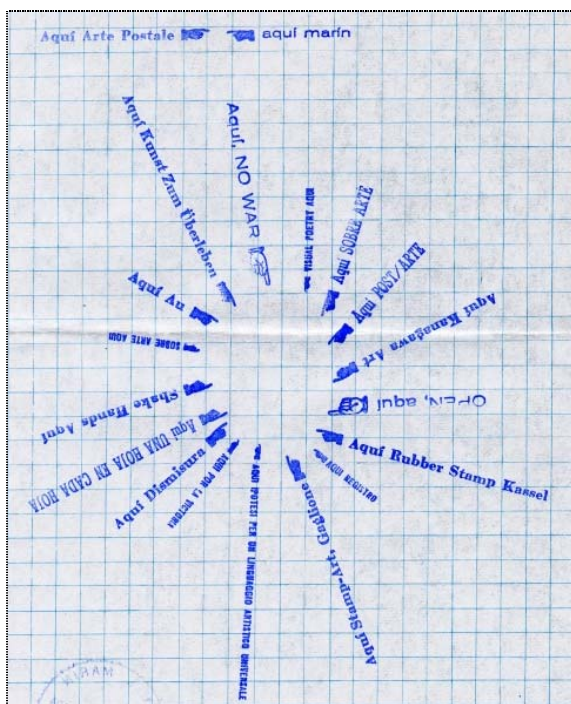 Aquí Arte Postale
aquí marín
Aquí Kunst Zum Überleben
Aquí, NO WAR
VISUAL POETRY AQUI
Aquí SOBRE ARTE
Aquí POST/ARTE
Aquí Kanagawa Art
OPEN, aquí
Aquí Rubber Stamp Kassel
AQUI REGISTRO
Aquí Stamp-Art, Gaglione
AQUI IPOTESI PER UN LINGUAGGIO ARTISTICO UNIVERSALE
AQUI POR LA VICTORIA
Aquí Dismisura
Aquí UNA HOJA EN CADA HOJA
Shake Hands Aquí
SOBRE ARTE AQUI
Aquí Au